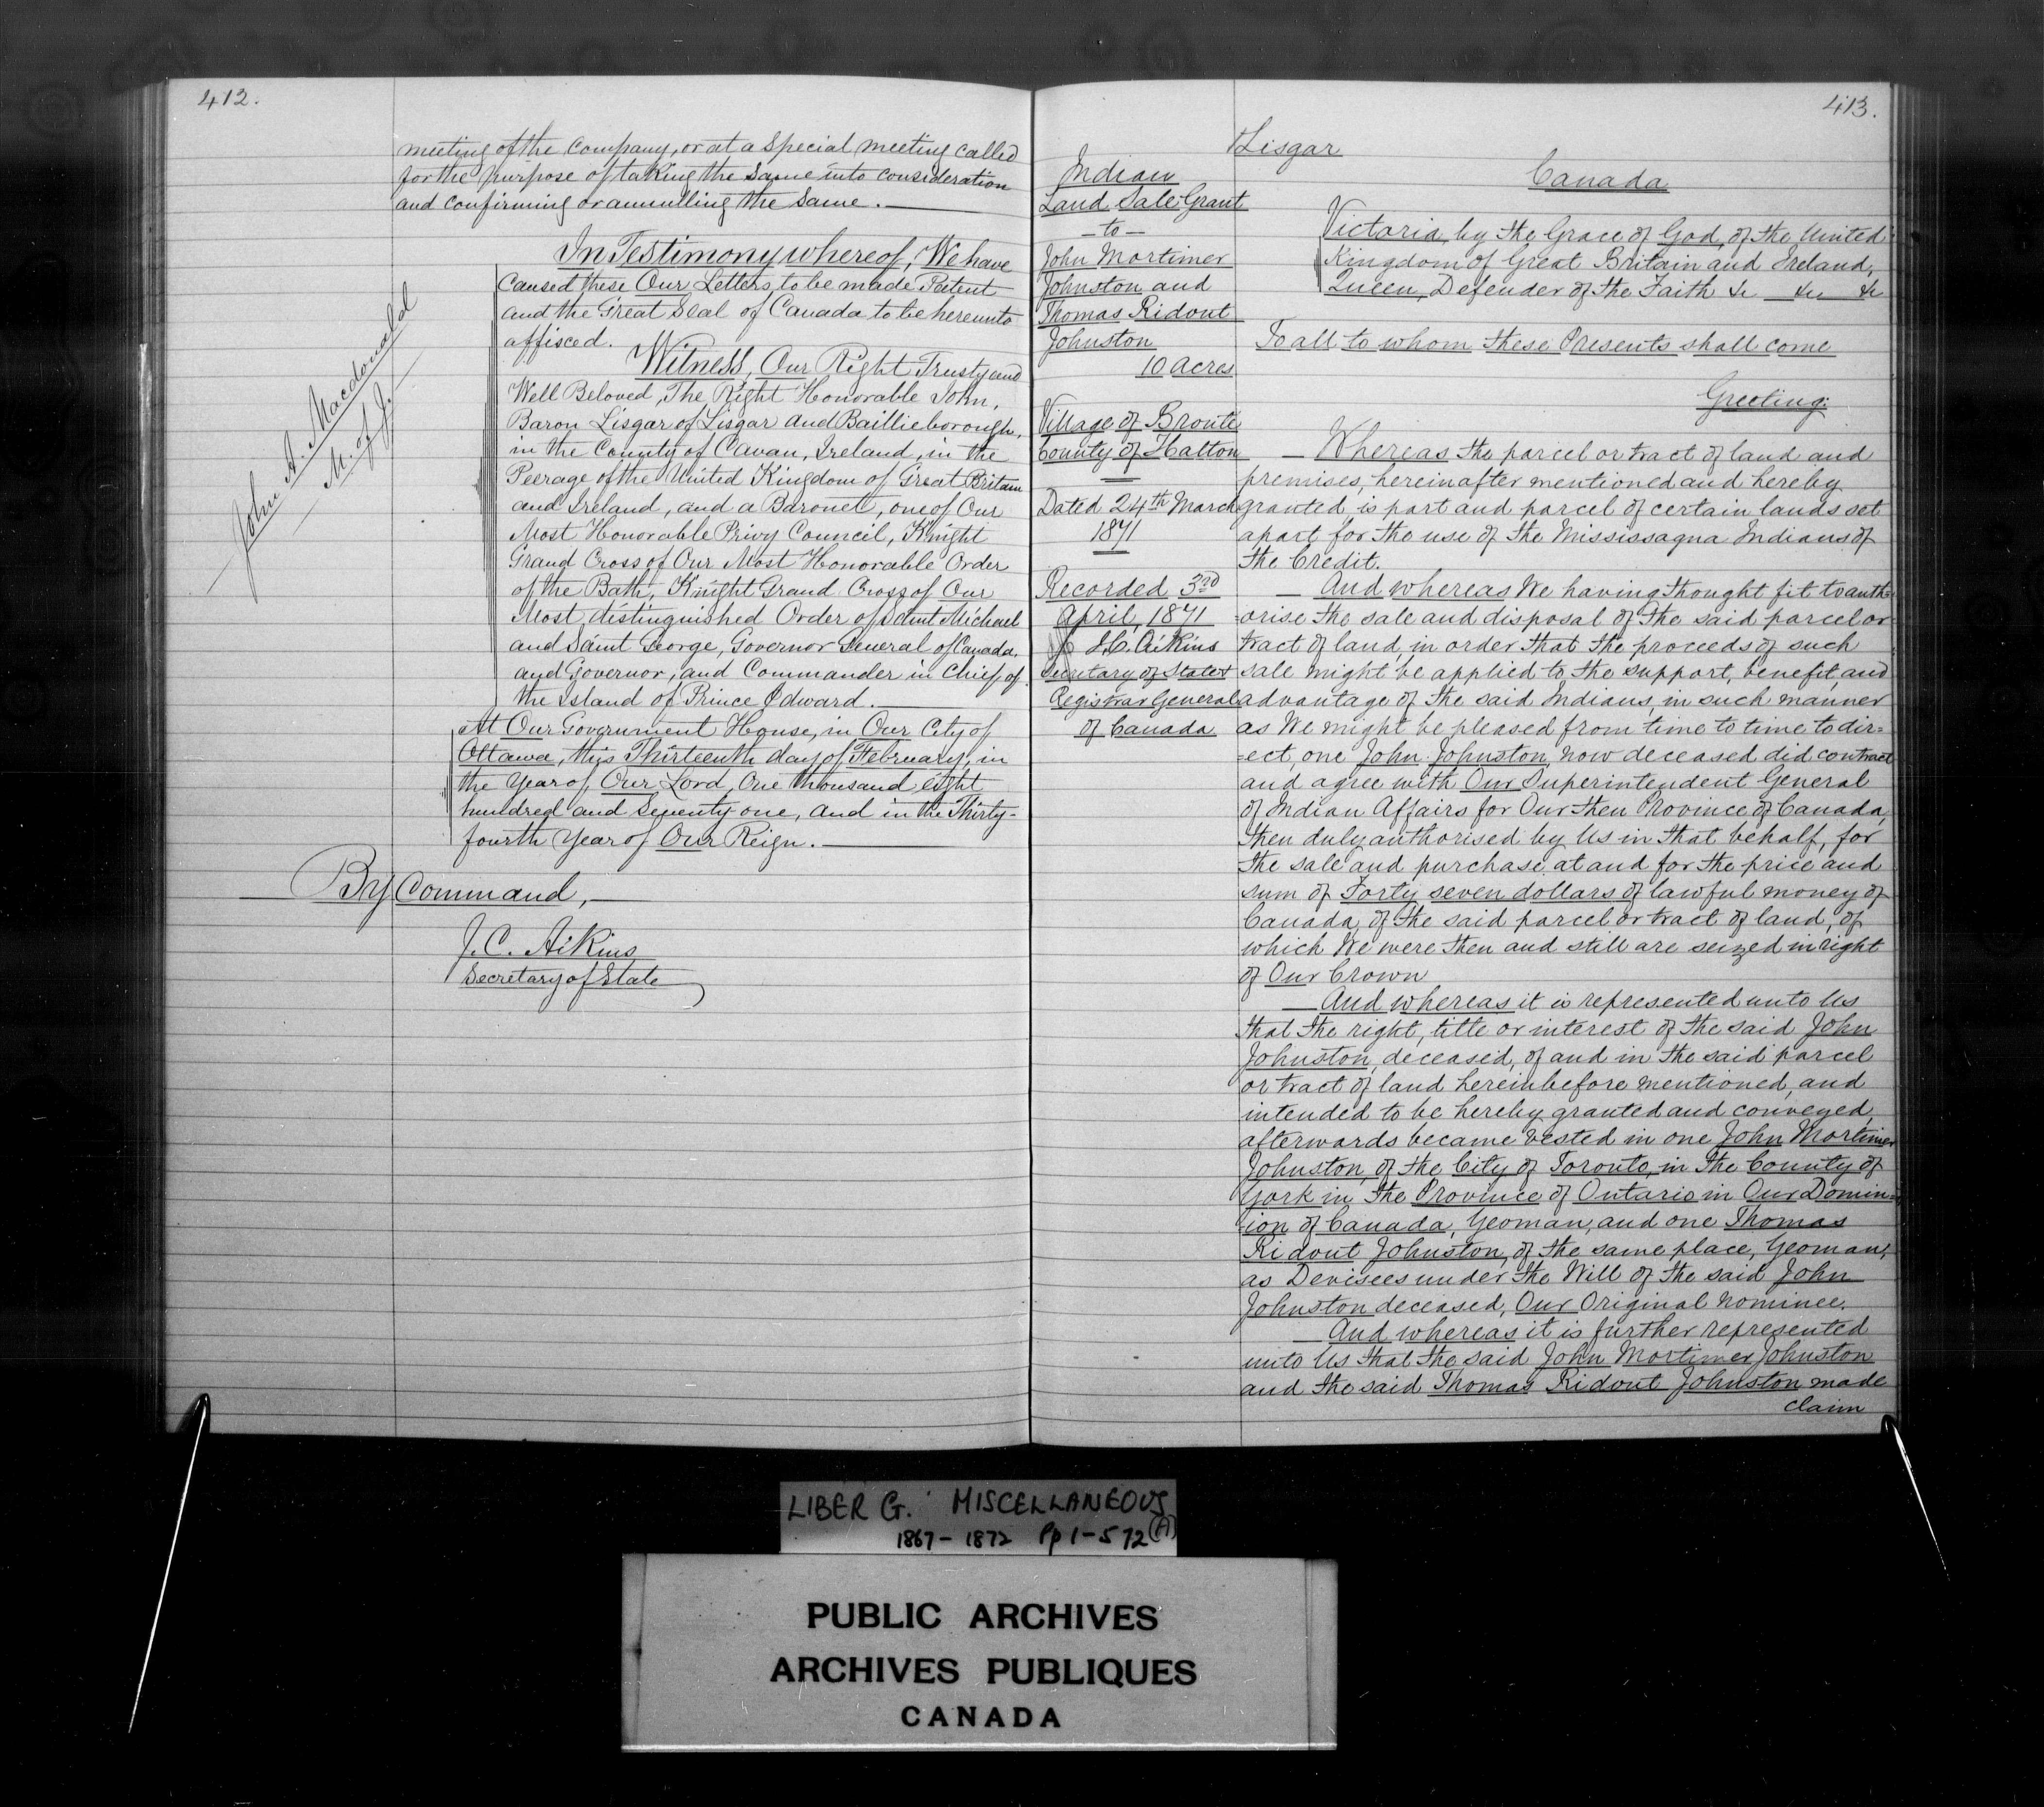 412.
meeting of the Company, or at a special meeting called
for the purpose of taking the same into consideration
and confirming or annulling the same.
In Testimony whereof, We have
caused these Our Letters to be made Patent
and the Great Seal of Canada to be hereunto
affixed.
Witness, Our Right Trusty and
Well Beloved, The Right Honorable John,
Baron Lisgar of Lisgar and Baillieborough,
in the County of Cavan, Ireland, in the
Peerage of the United Kingdom of Great Britain
and Ireland, and a Baronet, one of Our
Most Honorable Privy Council, Knight
Grand Cross of Our Most Honorable Order
of the Bath, Knight Grand Cross of Our
Most distinguished Order of Saint Michael
and Saint George, Governor General of Canada,
and Governor, and Commander in Chief of
the Island of Prince Edward.
At Our Government House, in Our City of
Ottawa, this Thirteenth day of February, in
the Year of Our Lord, One thousand eight
hundred and Seventy one, and in the Thirty-
fourth Year of Our Reign.
By Command,
J. C. Aikins
Secretary of State
John A. Macdonald
M. of J.
413.
Lisgar
Indian
Land Sale Grant
- to -
John Mortimer
Johnston and
Thomas Ridout
Johnston
10 Acres
Village of Bronte
County of Halton
Dated 24th March
1871
Recorded 3rd
April, 1871
J. C. Aikins
Secretary of State &
Registrar General
of Canada
Canada
Victoria, by the Grace of God, of the United
Kingdom of Great Britain and Ireland,
Queen, Defender of the Faith &c &c &c
To all to whom these Presents shall come
Greeting:
Whereas the parcel or tract of land and
premises, hereinafter mentioned and hereby
granted is part and parcel of certain lands set
apart for the use of the Mississagua Indians of
the Credit.
And whereas We having thought fit to auth=
orise the sale and disposal of the said parcel or
tract of land, in order that the proceeds of such
sale might be applied to the support, benefit, and
advantage of the said Indians, in such manner
as We might be pleased from time to time to dir=
=ect, one John Johnston, now deceased did contract
and agree with Our Superintendent General
of Indian Affairs for Our then Province of Canada,
then duly authorised by Us in that behalf, for
the sale and purchase, at and for the price and
sum of Forty seven dollars of lawful money of
Canada, of the said parcel or tract of land, of
which We were then and still are seized in right
of Our Crown
And whereas it is represented unto Us
that the right, title or interest of the said John
Johnston, deceased, of and in the said parcel
or tract of land hereinbefore mentioned, and
intended to be hereby granted and conveyed,
afterwards became vested in one John Mortimer
Johnston, of the City of Toronto, in the County of
York in the Province of Ontario in Our Domin=
=ion of Canada, Yeoman, and one Thomas
Ridout Johnston, of the same place, Yeoman,
as Devisees under the Will of the said John
Johnston deceased, Our Original nominee.
And whereas it is further represented
unto Us that the said John Mortimer Johnston
and the said Thomas Ridout Johnston made
claim
LIBER G. MISCELLANEOUS
1867 - 1872 Pp 1 - 572 (A)
PUBLIC ARCHIVES
ARCHIVES PUBLIQUES
CANADA